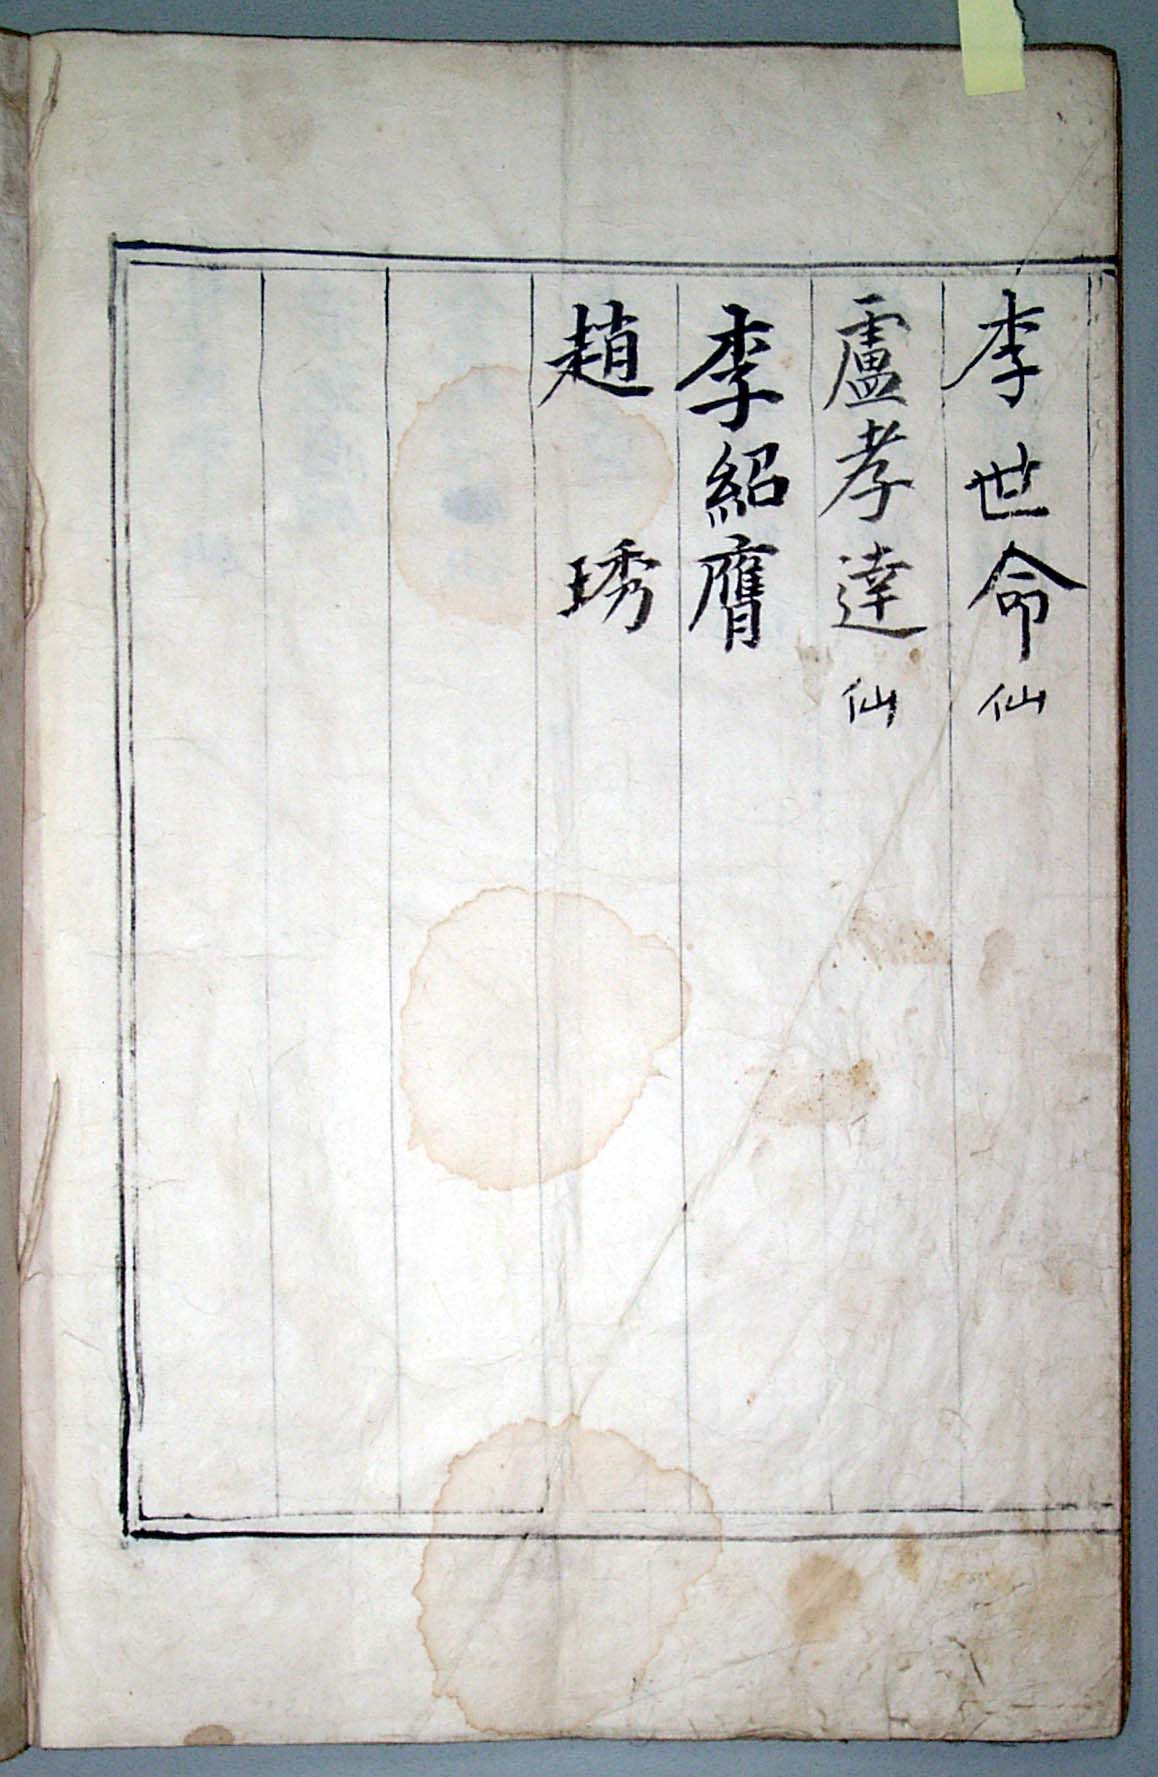 李世命仙
盧孝達仙
李紹膺
趙琇